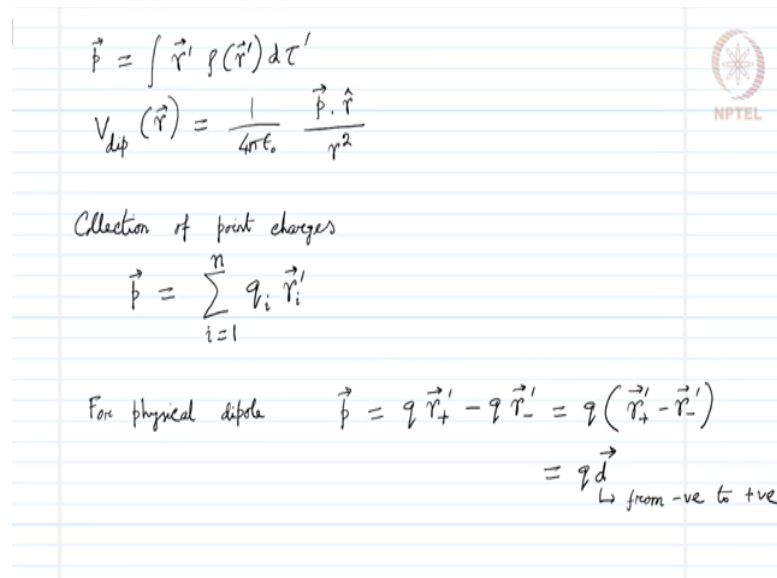 p⃗ = ∫ r⃗' ρ(r⃗') dτ'
V_dip (r⃗) = 1/4πε₀ p⃗.r̂/r²
NPTEL
Collection of point charges
p⃗ = Σ_{i=1}^{n} q_i r⃗_i'
For physical dipole p⃗ = q r⃗₊' - q r⃗₋' = q(r⃗₊' - r⃗₋')
= q d⃗
↳ from -ve to +ve